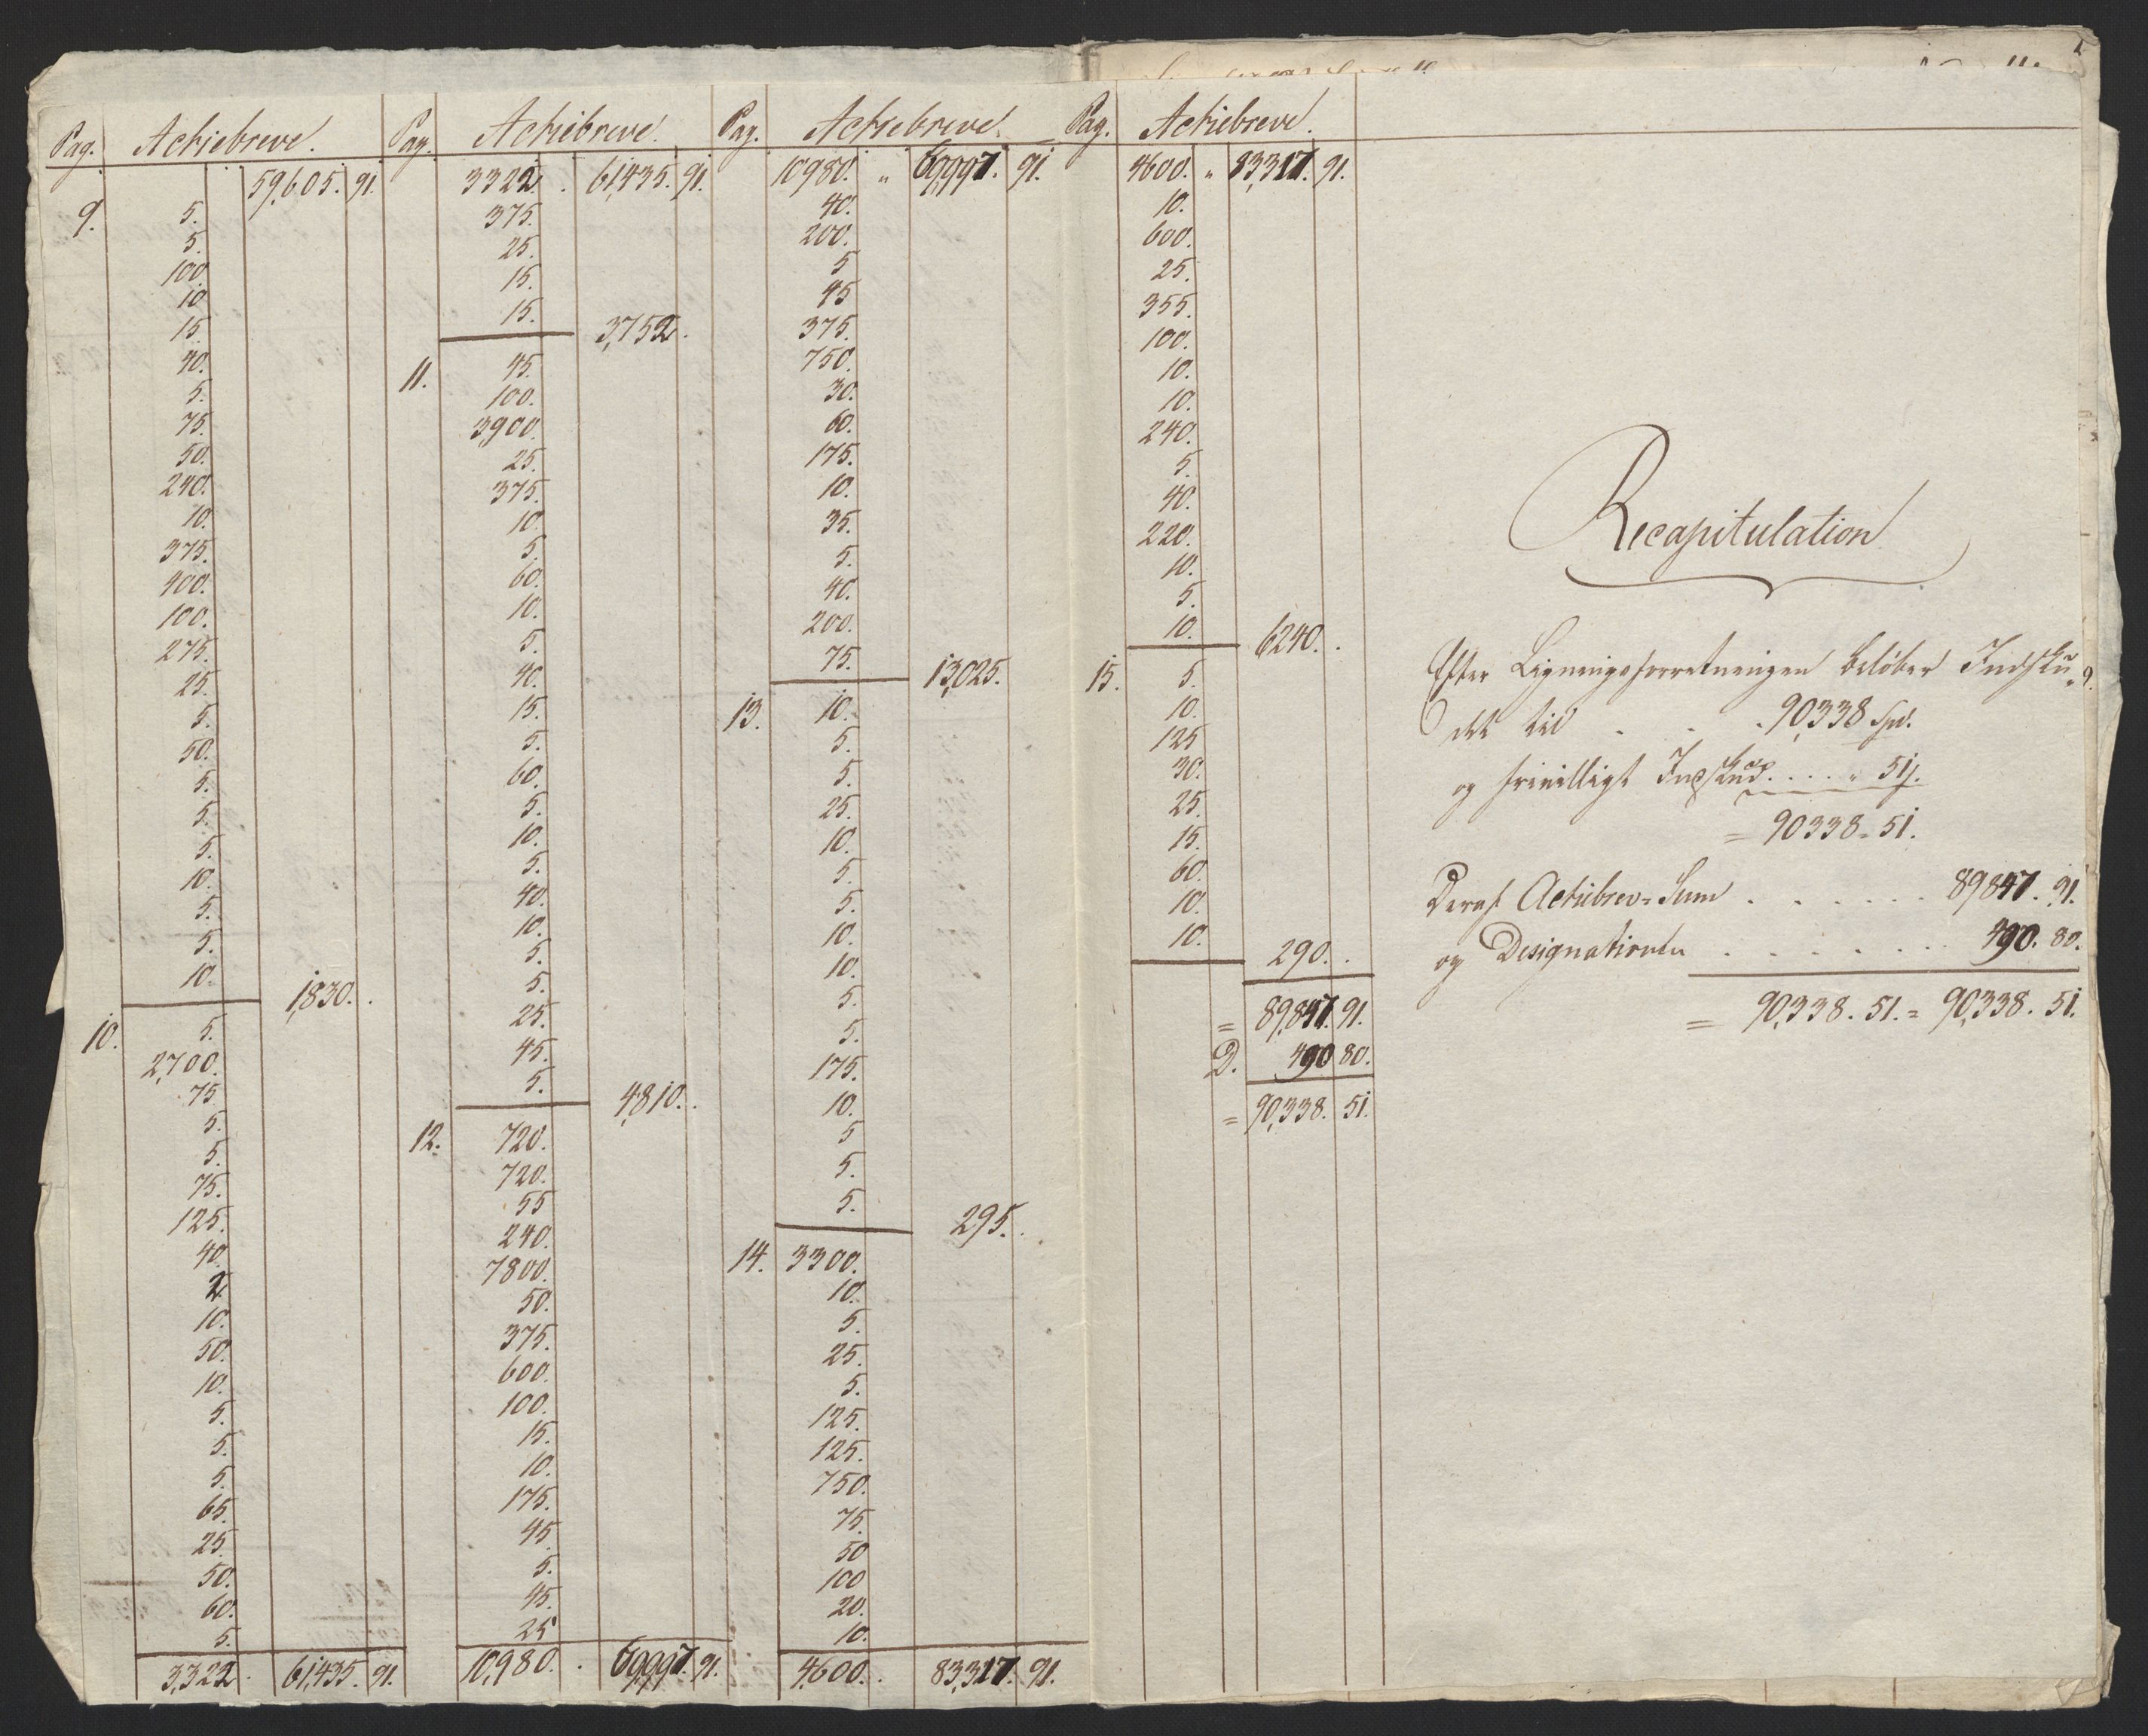 Pag. Actiebreve.
59,605. 91.
9. 5.
5.
100.
10
15.
40.
5.
75.
50.
240.
10.
375.
400.
100.
275.
25.
5.
50.
5.
5.
5.
10.
5.
5.
10.
1,830. .
10. 5.
2,700.
75.
5.
5.
75.
125.
40.
2.
10.
50.
10.
5.
5.
5.
65.
25.
50.
60.
5.
3,322 . 61,435. 91.
Pag. Actiebreve.
3322 . 61,435. 91.
375.
25.
15.
15.
3,752 .
11. 45.
100.
3,900.
25.
375.
10.
5.
60.
10.
5.
40.
15.
5.
60.
5.
10.
5.
40.
10.
5.
5.
25.
45.
5.
4,810. .
12. 720.
720.
55
240.
7800.
50.
375.
600.
100.
15.
10.
175.
45.
5.
45.
25
10,980. . 69,997. 91.
Pag. Actiebreve.
10980. „ 69,997. 91.
40.
200.
5
45
375.
750.
30.
60.
175.
10.
35.
5.
40.
200.
75.
13,025.
13. 10.
5.
5.
25.
10.
5.
5.
10.
10.
5.
5.
175.
10.
5
5.
5.
295. .
14. 3300.
10.
5.
25.
5.
125.
125.
750.
75.
50
100
20.
10.
4,600. . 83,317. 91.
Pag. Actiebreve.
4600. „ 83,317. 91.
10.
600.
25.
355.
100.
10.
10.
240.
5.
40.
220.
10.
5.
10.
6240. .
15. 5.
10.
125
30.
25.
15.
60.
10.
10.
290. .
= 89,847. 91.
D. 490 80.
= 90,338. 51.
Recapitulation
Efter Ligningsforretningen beløber Indsku-
det til . . . 90,338 Spd.
og frivilligt Indskud. . . . „ 51 β.
= 90338 = 51.
Deraf Actiebrev=Sum . . . . . . 89847. 91.
og Designationen . . . . . . 490. 80.
= 90,338. 51. = 90,338. 51.